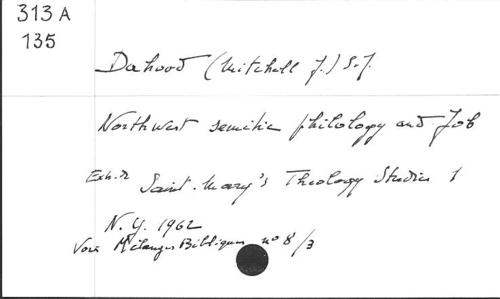 313 A
135
Dahood (Mitchell J.) S.J.
Northwest semitic philology and Job
Extr. Saint Mary's Theology Studies 1
N.Y. 1962
Voir Mélanges Bibliques no 8/3